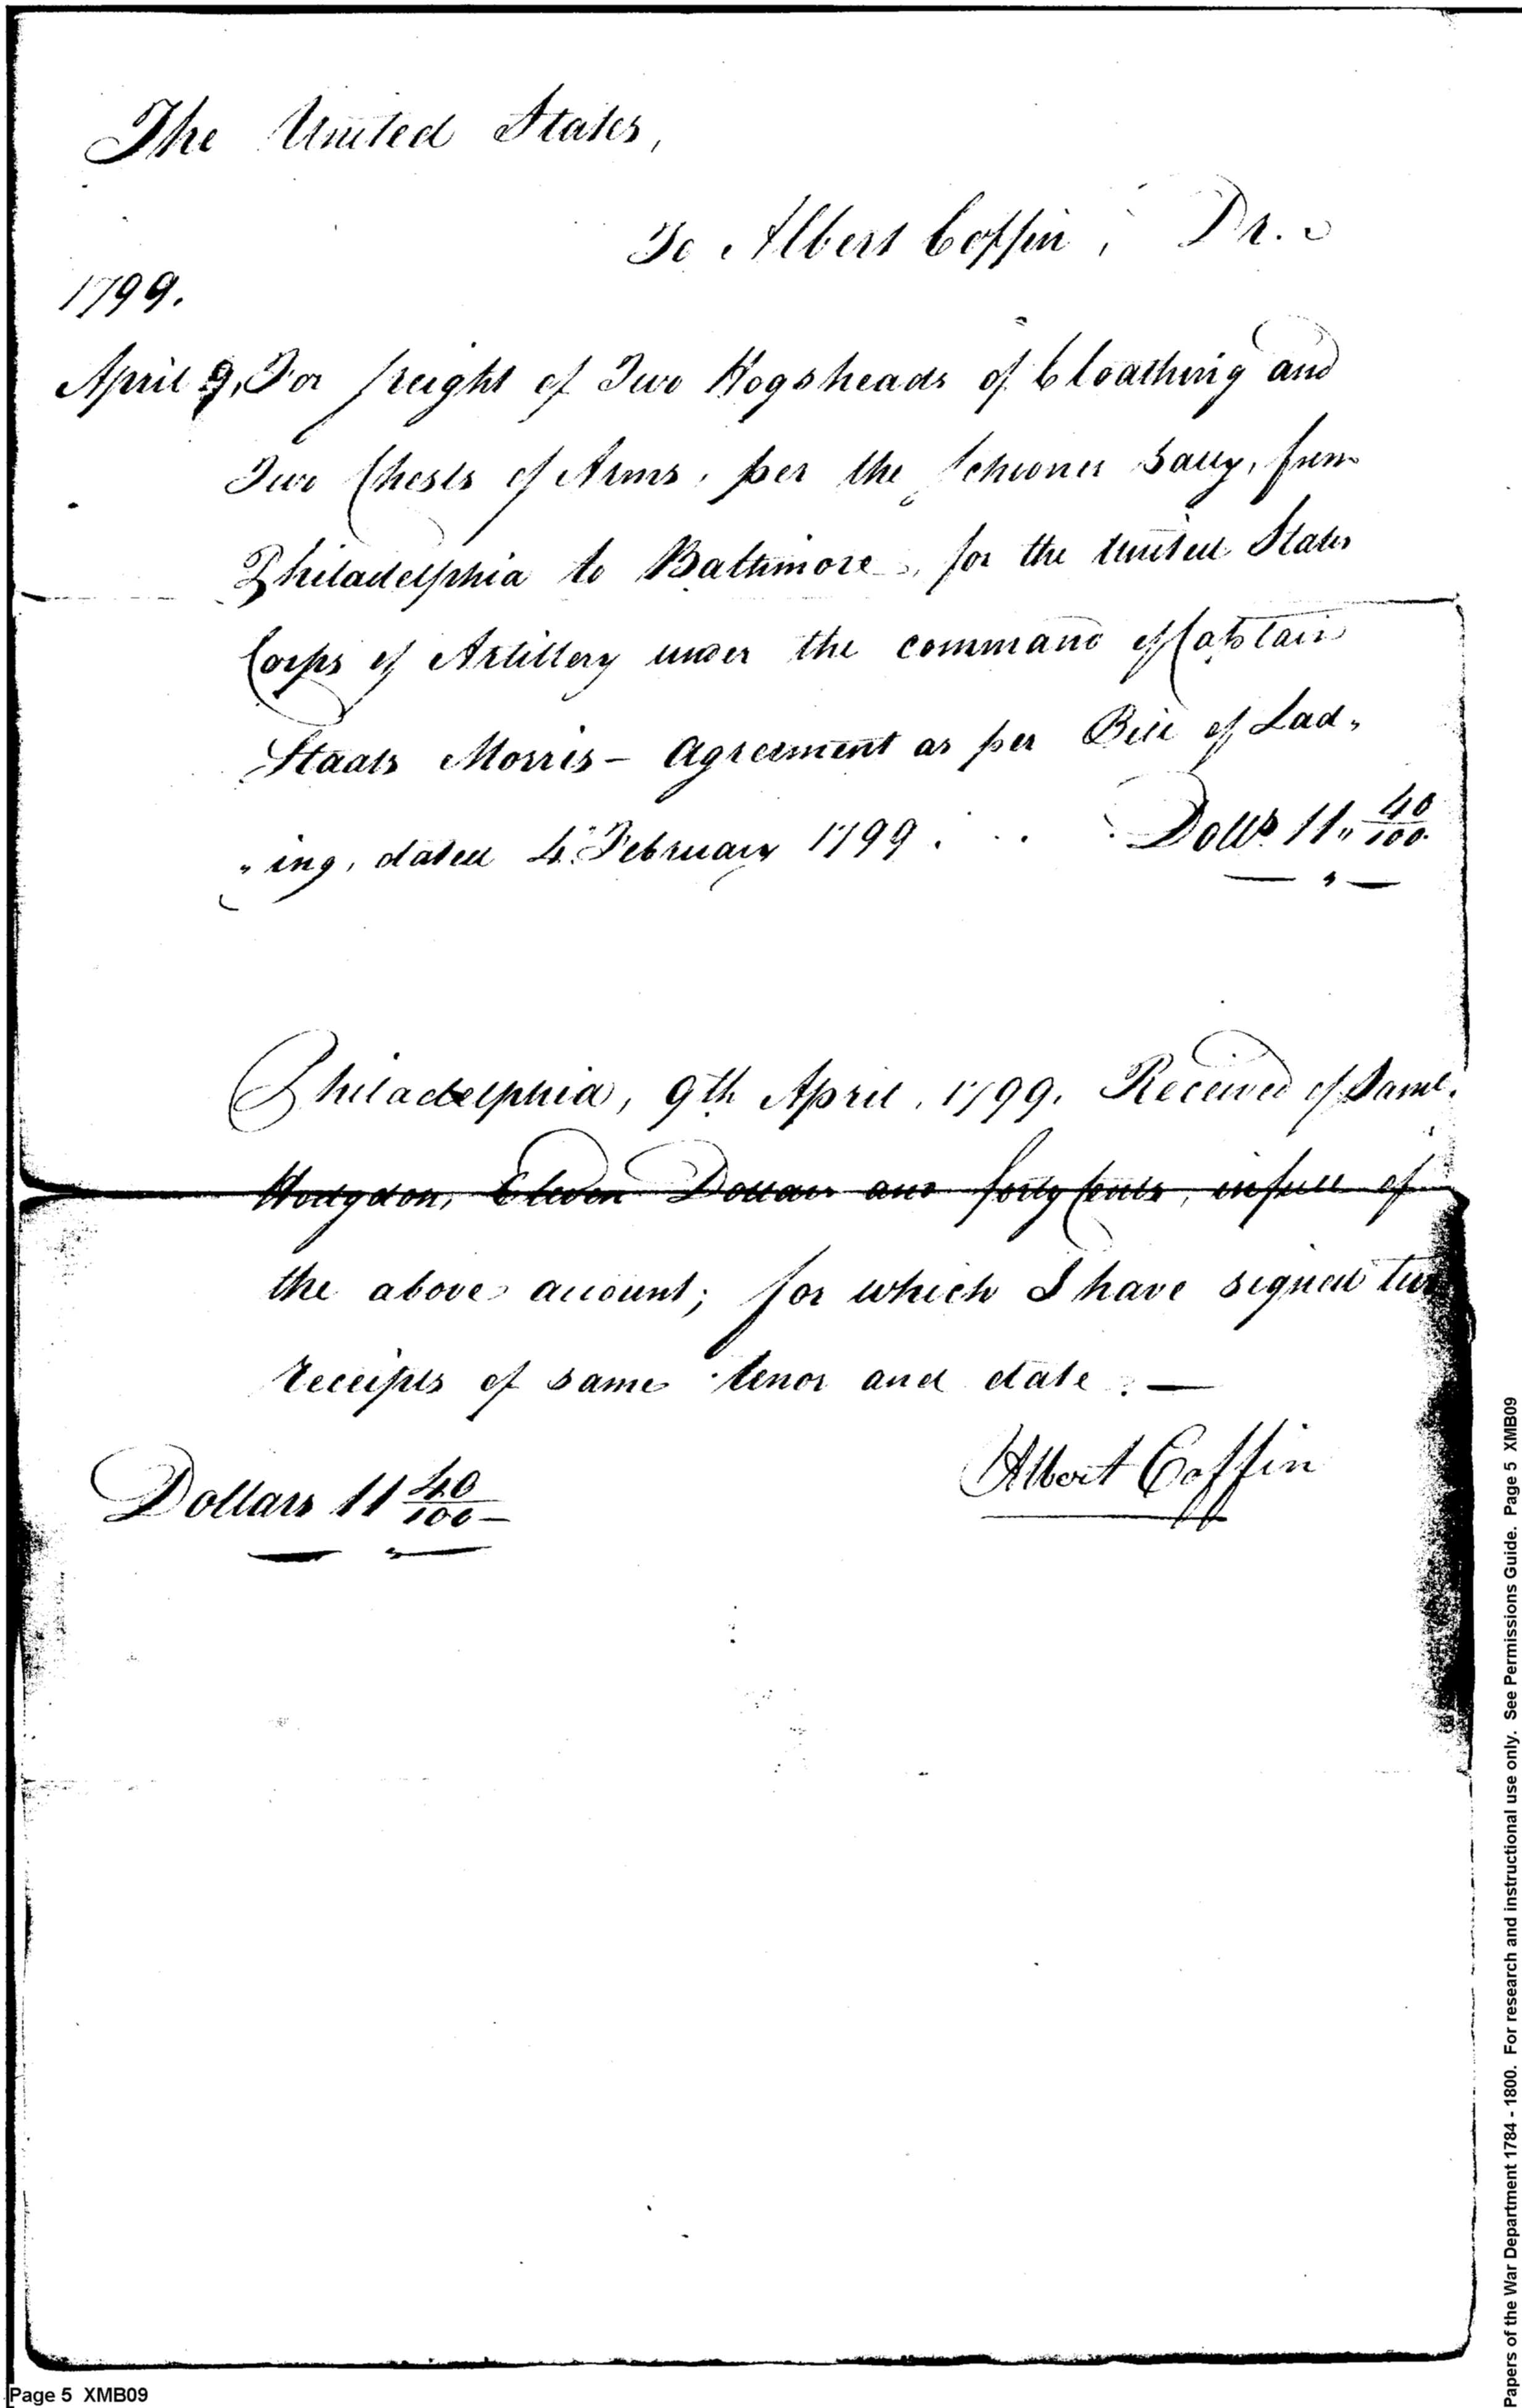 The United States,
To Albert Coffin, Dr.
1799.
April 9, For freight of Two Hogsheads of Cloathing and
Two Chests of Arms, per the Schooner Sally, from
Philadelphia to Baltimore, for the United States
Corps of Artillery under the command of Captain
Staats Morris – Agreement as per Bill of Lad„
„ing, dated 4. February 1799. . . Dolls. 11„ 40/100.
Philadelphia, 9th April, 1799. Received of Saml.
Hodgdon, Eleven Dollars and forty Cents, in full of
the above account; for which I have signed two
receipts of same tenor and date. —
Albert Coffin
Dollars 11 40/100 –
Page 5 XMB09
Papers of the War Department 1784 - 1800. For research and instructional use only. See Permissions Guide. Page 5 XMB09